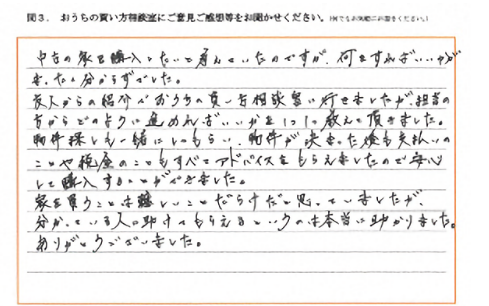 問3．おうちの買い方相談室にご意見ご感想等をお聞かせください。(何でもお気軽にお書きください。)
中古の家を購入したいと考えていたのですが、何をすればいいかが
まったく分からずでした。
友人からの紹介でおうちの買い方相談室に行きましたが、担当の
方からどのように進めればいいかを1つ1つ教えて頂きました。
物件探しも一緒にしてもらい、物件が決まった後も支払いの
ことや税金のこともすべてアドバイスをもらえましたので安心
して購入することができました。
家を買うことは難しいことだらけだと思っていましたが、
分かっている人に助けてもらえるというのは本当に助かりました。
ありがとうございました。